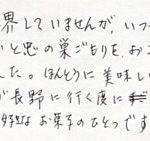 界していませんが、いつ
いと思の巣ごもりを、おこ
した。ほんとうに美味しい
が長野に行く度に
好きな お菓子のひとつです